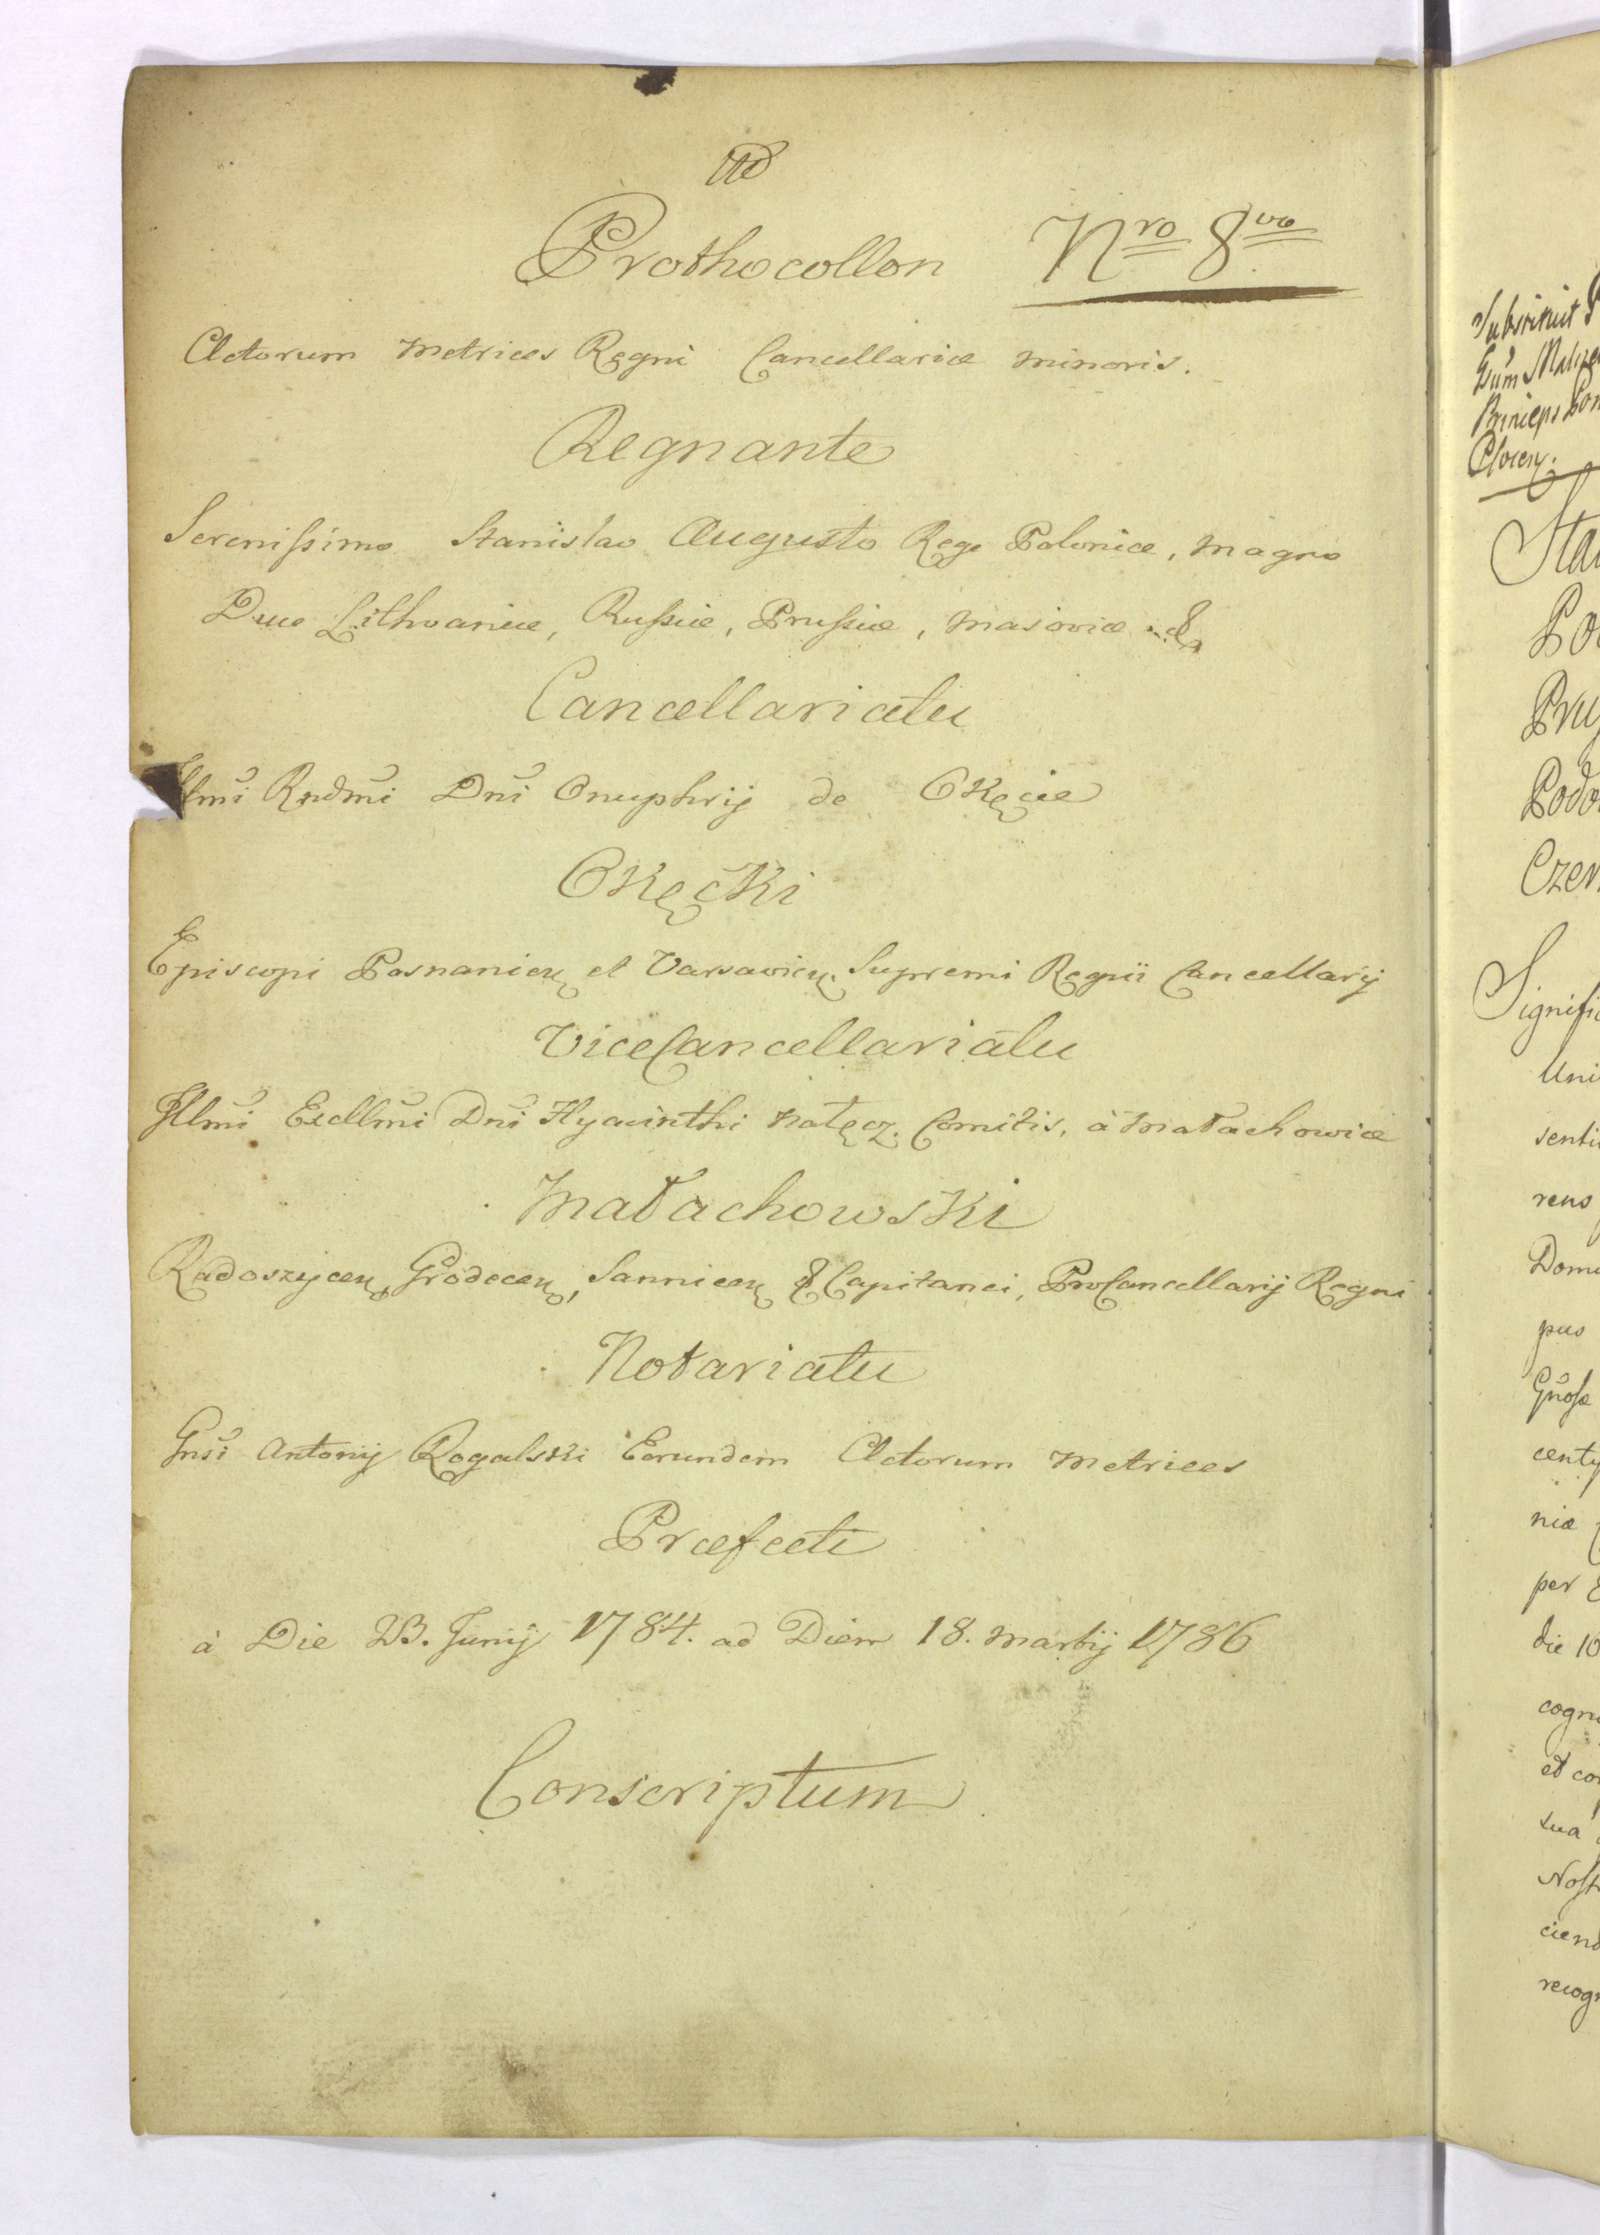 Prothocollon Nro 8vo
Actorum Metrices Regni Cancellariæ Minoris.
Regnante
Serenissimo Stanislao Augusto Rege Poloniæ, Magno
Duce Lithvaniæ, Russiæ, Prussiæ, Masoviæ &
Cancellariatu
Illmi Rndmi Dni Onuphrij de Okęcie
Okęcki
Episcopi Posnanien et Varsavien. Supremi Regni Cancellarij
ViceCancellariatu
Illmi Excllmi Dni Hyacinthi Nałęcz. Comitis, à Małachowice
Małachowski
Radoszycen, Grodecen, Sannicen & Capitanei, ProCancellarij Regni
Notariatu
Gnsi Antonij Rogalski Eorundem Actorum Metrices
Præfecti
à Die 23. Junij 1784. ad Diem 18. Martij 1786
Conscriptum
Gum
Princeps
Plocen.
Sta
Po
Pru
Podo
Czer
Signifi
Uni
senti
rens
Dom
pus
Gnosæ
centy
niæ
per
die 10
cogn
et co
sua
Nost
ciend
recog